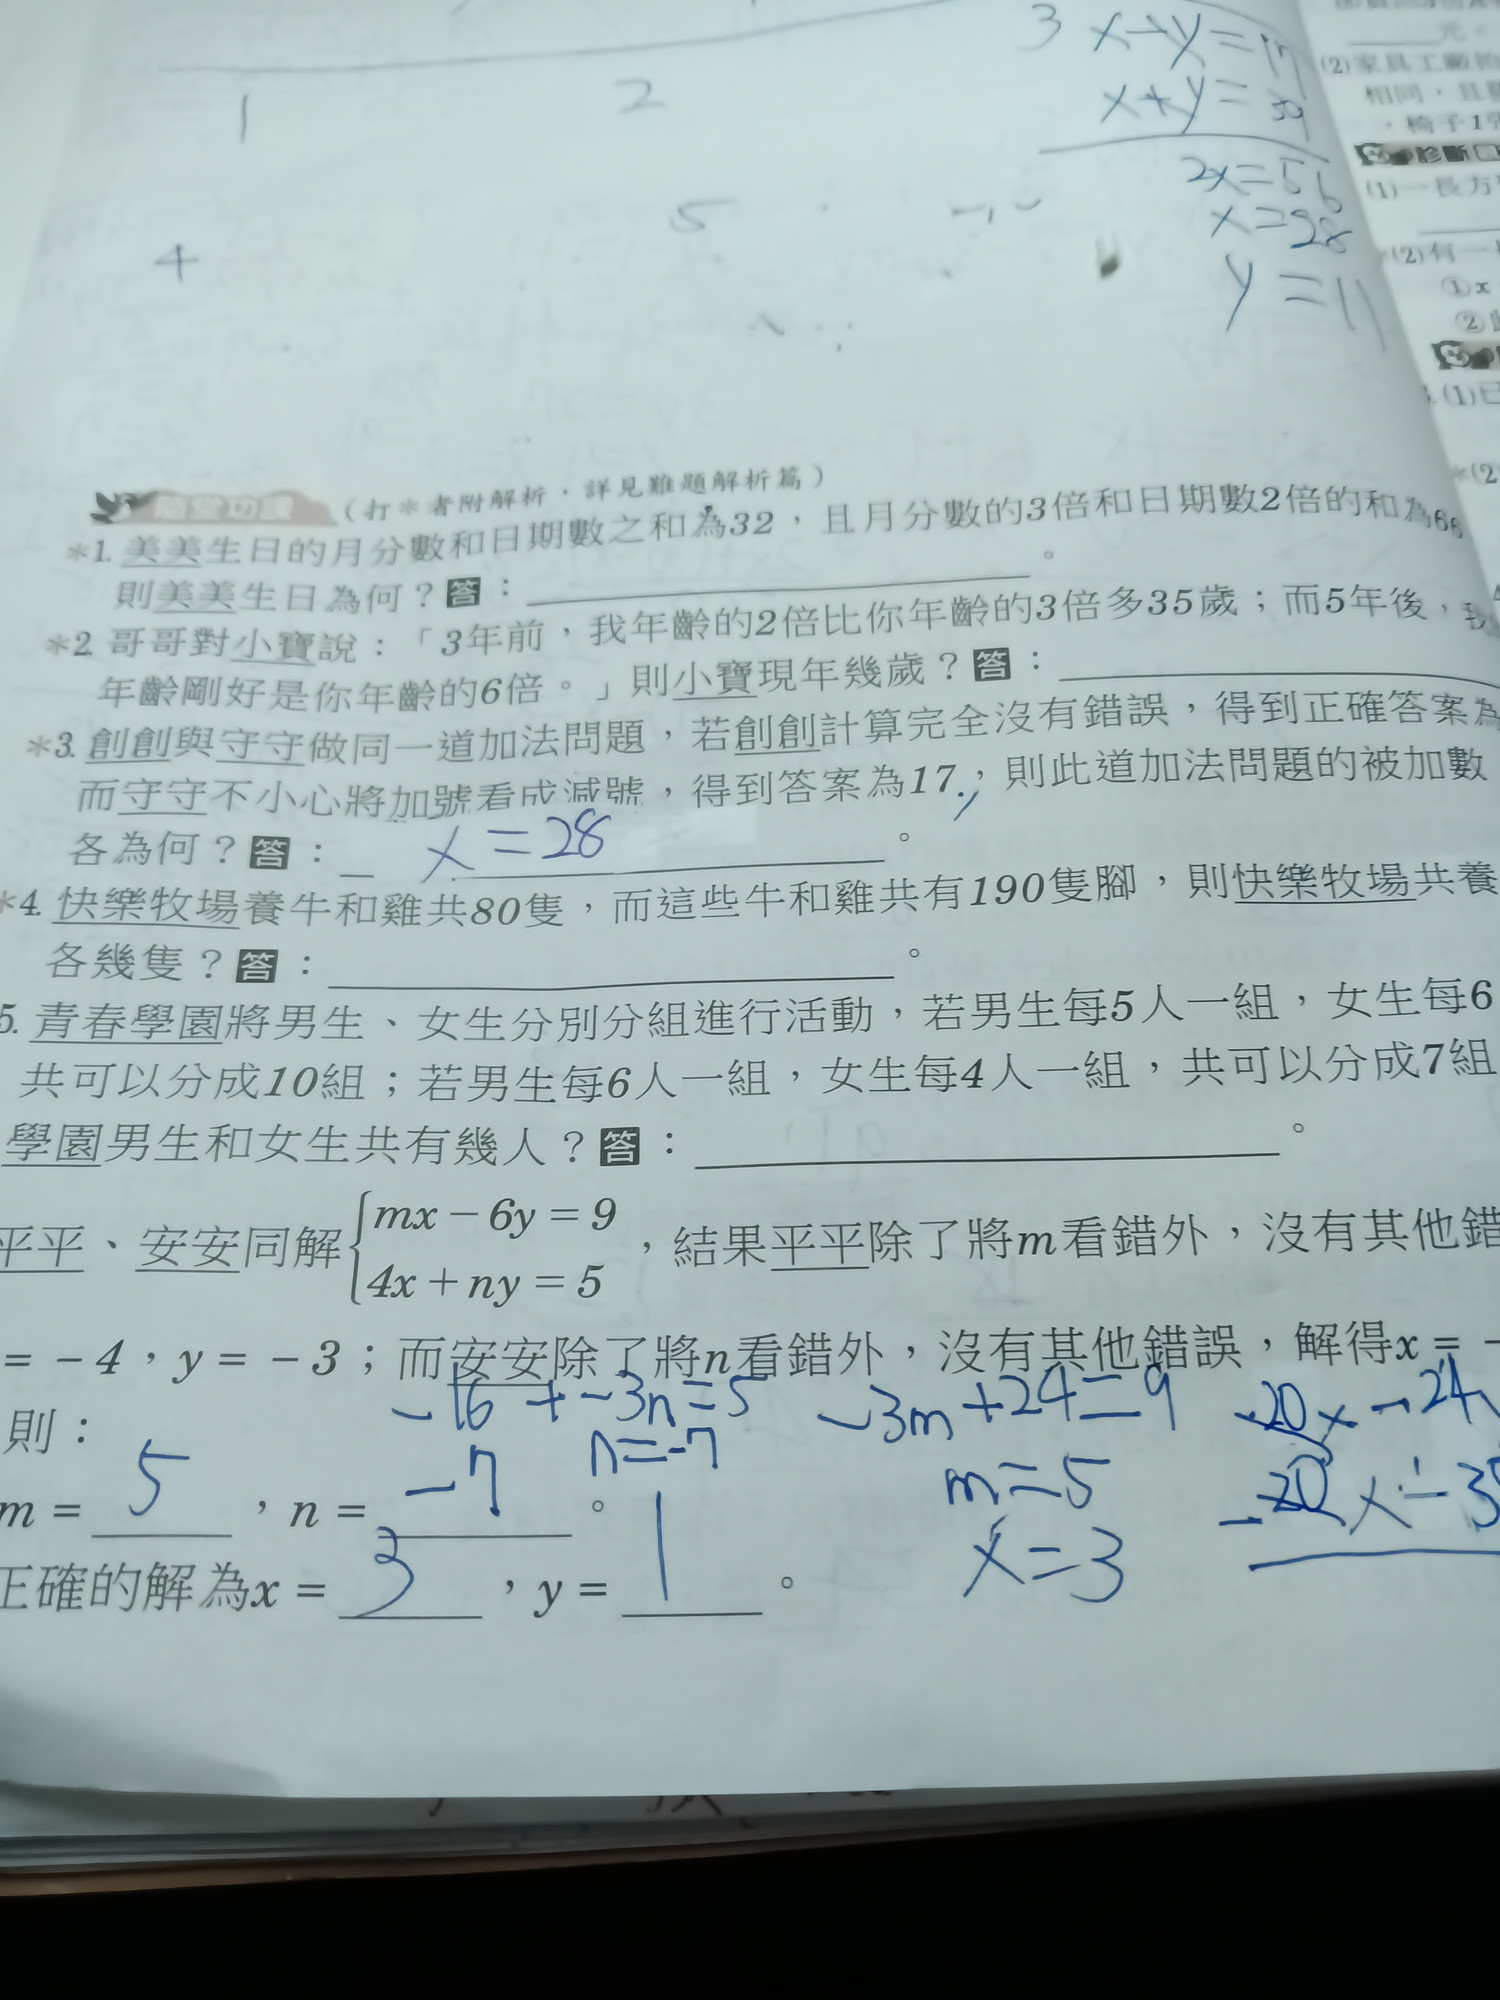 3 x-y=17
x+y=39
2x=56
x=28
y=11
1 2
4 5
隨堂功課（打＊者附解析，詳見難題解析篇）
＊1. 美美生日的月分數和日期數之和為32，且月分數的3倍和日期數2倍的和為66
則美美生日為何？答：。
＊2. 哥哥對小寶說：「3年前，我年齡的2倍比你年齡的3倍多35歲；而5年後，我
年齡剛好是你年齡的6倍。」則小寶現年幾歲？答：
＊3. 創創與守守做同一道加法問題，若創創計算完全沒有錯誤，得到正確答案為
而守守不小心將加號看成減號，得到答案為17，則此道加法問題的被加數
各為何？答： x=28 。
＊4. 快樂牧場養牛和雞共80隻，而這些牛和雞共有190隻腳，則快樂牧場共養
各幾隻？答：。
5. 青春學園將男生、女生分別分組進行活動，若男生每5人一組，女生每6
共可以分成10組；若男生每6人一組，女生每4人一組，共可以分成7組
學園男生和女生共有幾人？答：。
平平、安安同解{mx-6y=9
4x+ny=5 ，結果平平除了將m看錯外，沒有其他錯
=-4，y=-3；而安安除了將n看錯外，沒有其他錯誤，解得x=-
-16+-3n=5 -3m+24=9 -20x-24
則：
n=-7 m=5
m= 5 ，n= -7 。
x=3
正確的解為x= 3 ，y= 1 。
(2)家具工廠
相同，且
，椅子1張
診斷
(1)一長方
(2)有一
①x
②
(1)已
(2)